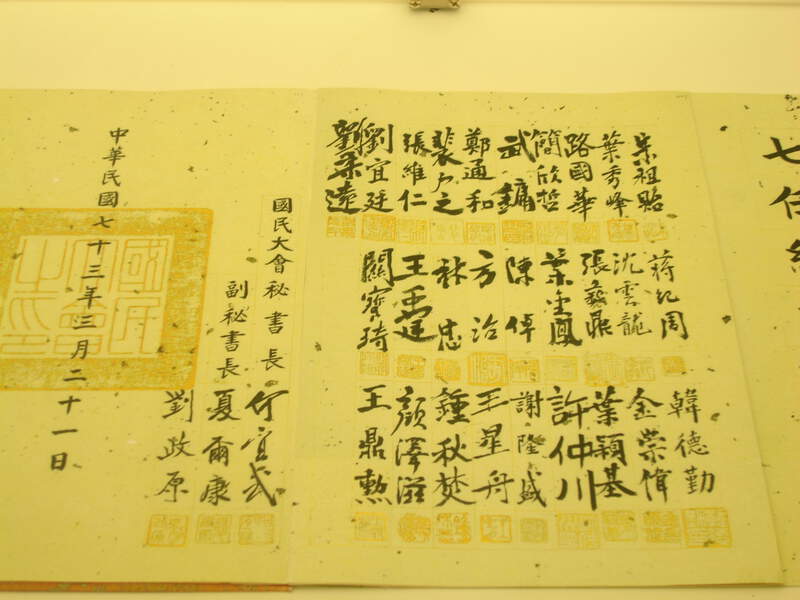 七任總
朱祖貽
葉秀峰
路國華
簡欣哲
武鏞
鄭通和
裴鳴宇
張維仁
劉宜廷
劉柔遠
蔣紀周
沈雲龍
張彝鼎
葉金鳳
陳倬
方治
林忠
王禹廷
關寶琦
韓德勤
金崇偉
葉穎基
許仲川
謝隆盛
王星舟
鍾秋焚
顏澤滋
王鼎勲
國民大會秘書長
何宜武
副秘書長
夏爾康
劉政原
中華民國七十三年三月二十一日